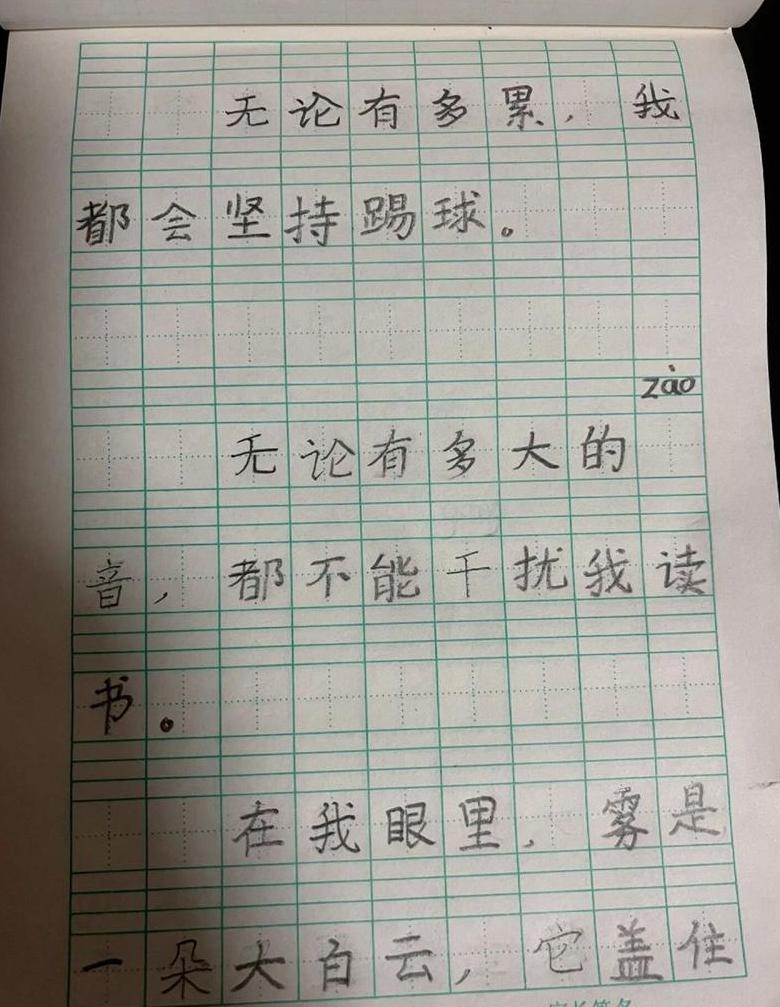 无论有多累，我
都会坚持踢球。
zào
无论有多大的
音，都不能干扰我读
书。
在我眼里，雾是
一朵大白云，它盖住
家长签名